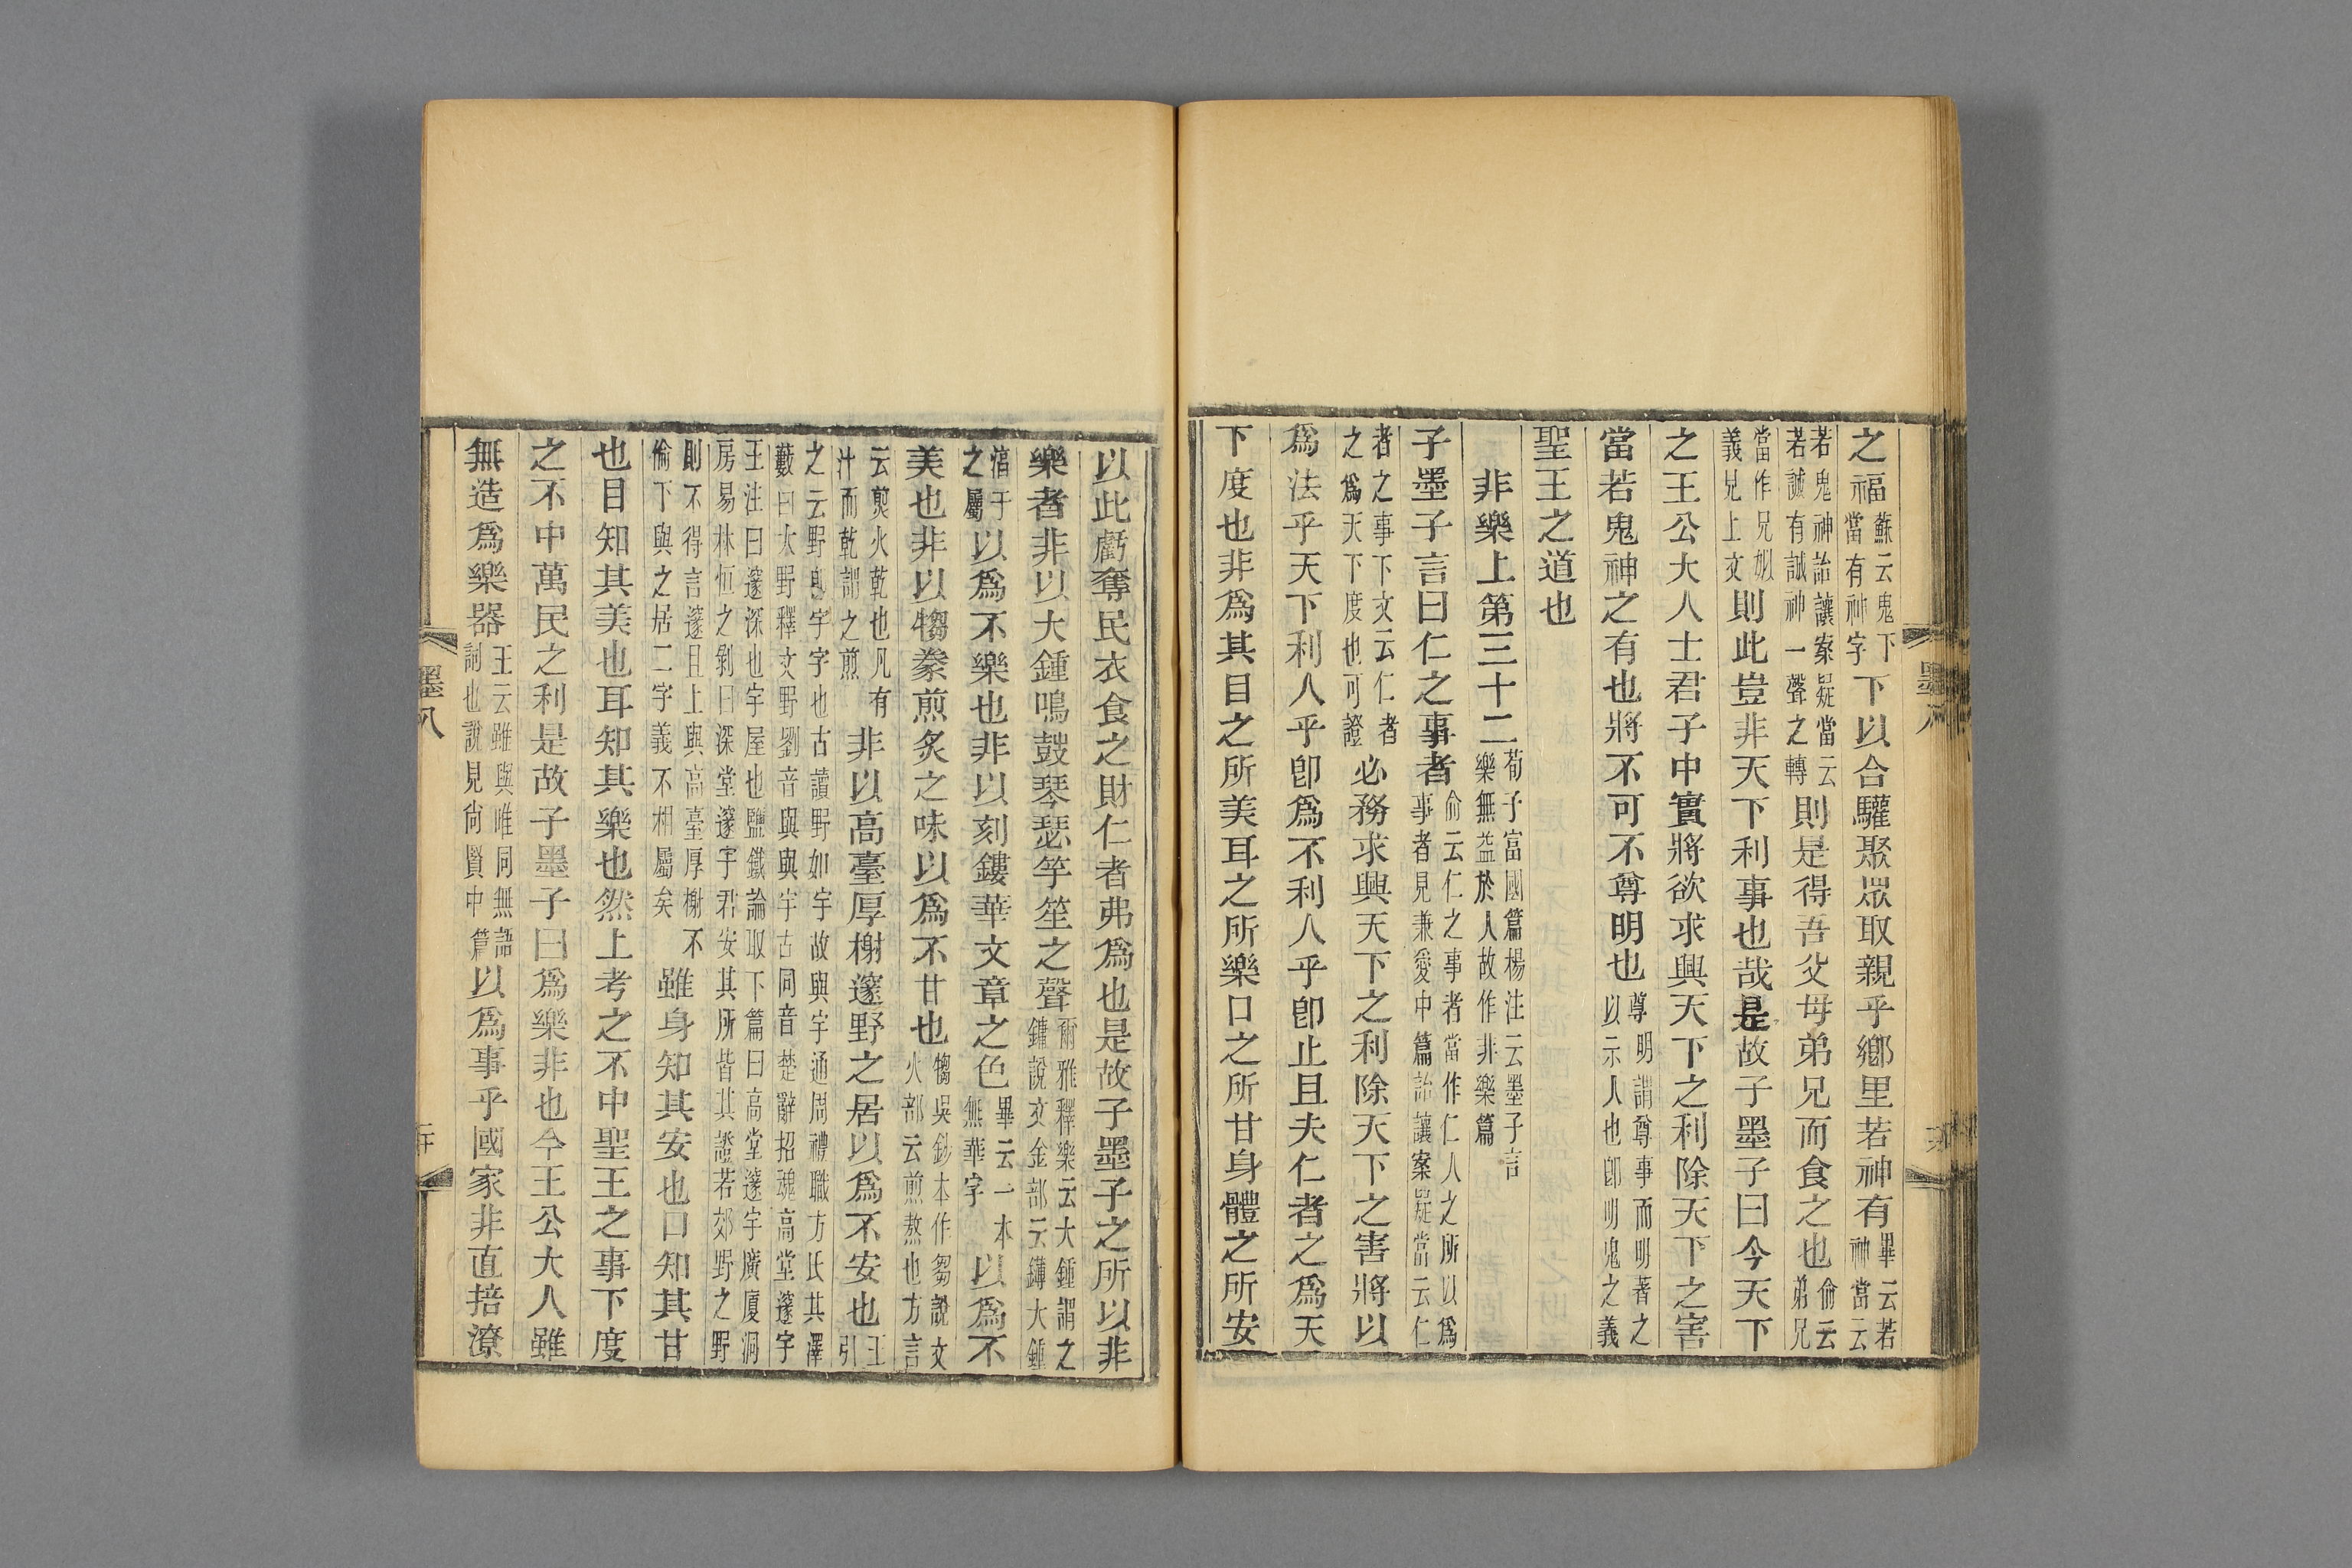 之福蘇云鬼下當有神字下以合驩聚眾取親乎鄉里若神有畢云若神當云
若鬼神詒讓案疑當云若誠有誠神一聲之轉則是得吾父母弟兄而食之也俞云弟兄
當作兄姒義見上文則此豈非天下利事也哉是故子墨子曰今天下
之王公大人士君子中實將欲求興天下之利除天下之害
當若鬼神之有也將不可不尊明也尊明謂尊事而明著之以示人也卽明鬼之義
聖王之道也
非樂上第三十二荀子富國篇楊注云墨子言樂無益於人故作非樂篇
子墨子言曰仁之事者俞云仁之事者當作仁人之所以爲事者見兼愛中篇詒讓案疑當云仁
者之事下文云仁者之爲天下度也可證必務求興天下之利除天下之害將以
爲法乎天下利人乎卽爲不利人乎卽止且夫仁者之爲天
下度也非爲其目之所美耳之所樂口之所甘身體之所安
以此虧奪民衣食之財仁者弗爲也是故子墨子之所以非
樂者非以大鍾鳴鼓琴瑟竽笙之聲爾雅釋樂云大鍾謂之鏞說文金部云鏄大鍾
湻于之屬以爲不樂也非以刻鏤華文章之色畢云一本無華字以爲不
美也非以犓豢煎炙之味以爲不甘也犓吳鈔本作芻說文火部云煎熬也方言
云煎火乾也凡有汁而乾謂之煎非以高臺厚榭邃野之居以爲不安也王引
之云野卽宇字也古讀野如宇故與宇通周禮職方氏其澤
藪曰大野釋文野劉音與與宇古同音楚辭招魂高堂邃宇
王注曰邃深也宇屋也鹽鐵論取下篇曰高堂邃宇廣廈洞
房易林恒之剝曰深堂邃宇君安其所皆其證若郊野之野
則不得言邃且上與高臺厚榭不倫下與之居二字義不相屬矣雖身知其安也口知其甘
也目知其美也耳知其樂也然上考之不中聖王之事下度
之不中萬民之利是故子墨子曰爲樂非也今王公大人雖
無造爲樂器王云雖與唯同無語詞也說見尙賢中篇以爲事乎國家非直掊潦
墨八
墨八